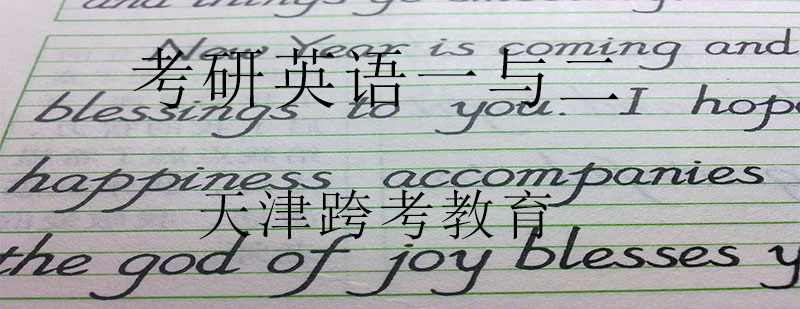 and things go smoothly
New Year is coming and
考研英语一与二
blessings to you. I hope
happiness accompanies
天津跨考教育
the god of joy blesses y